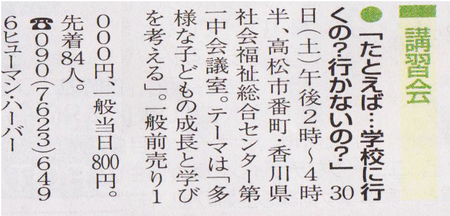 講習会
●「たとえば…学校に行
くの?行かないの?」 30
日(土)午後2時〜4時
半、高松市番町・香川県
社会福祉総合センター第
一中会議室。テーマは「多
様な子どもの成長と学び
を考える」。一般前売り1
000円、一般当日800円。
先着84人。
☎090(7623)649
6ヒューマン・ハーバー